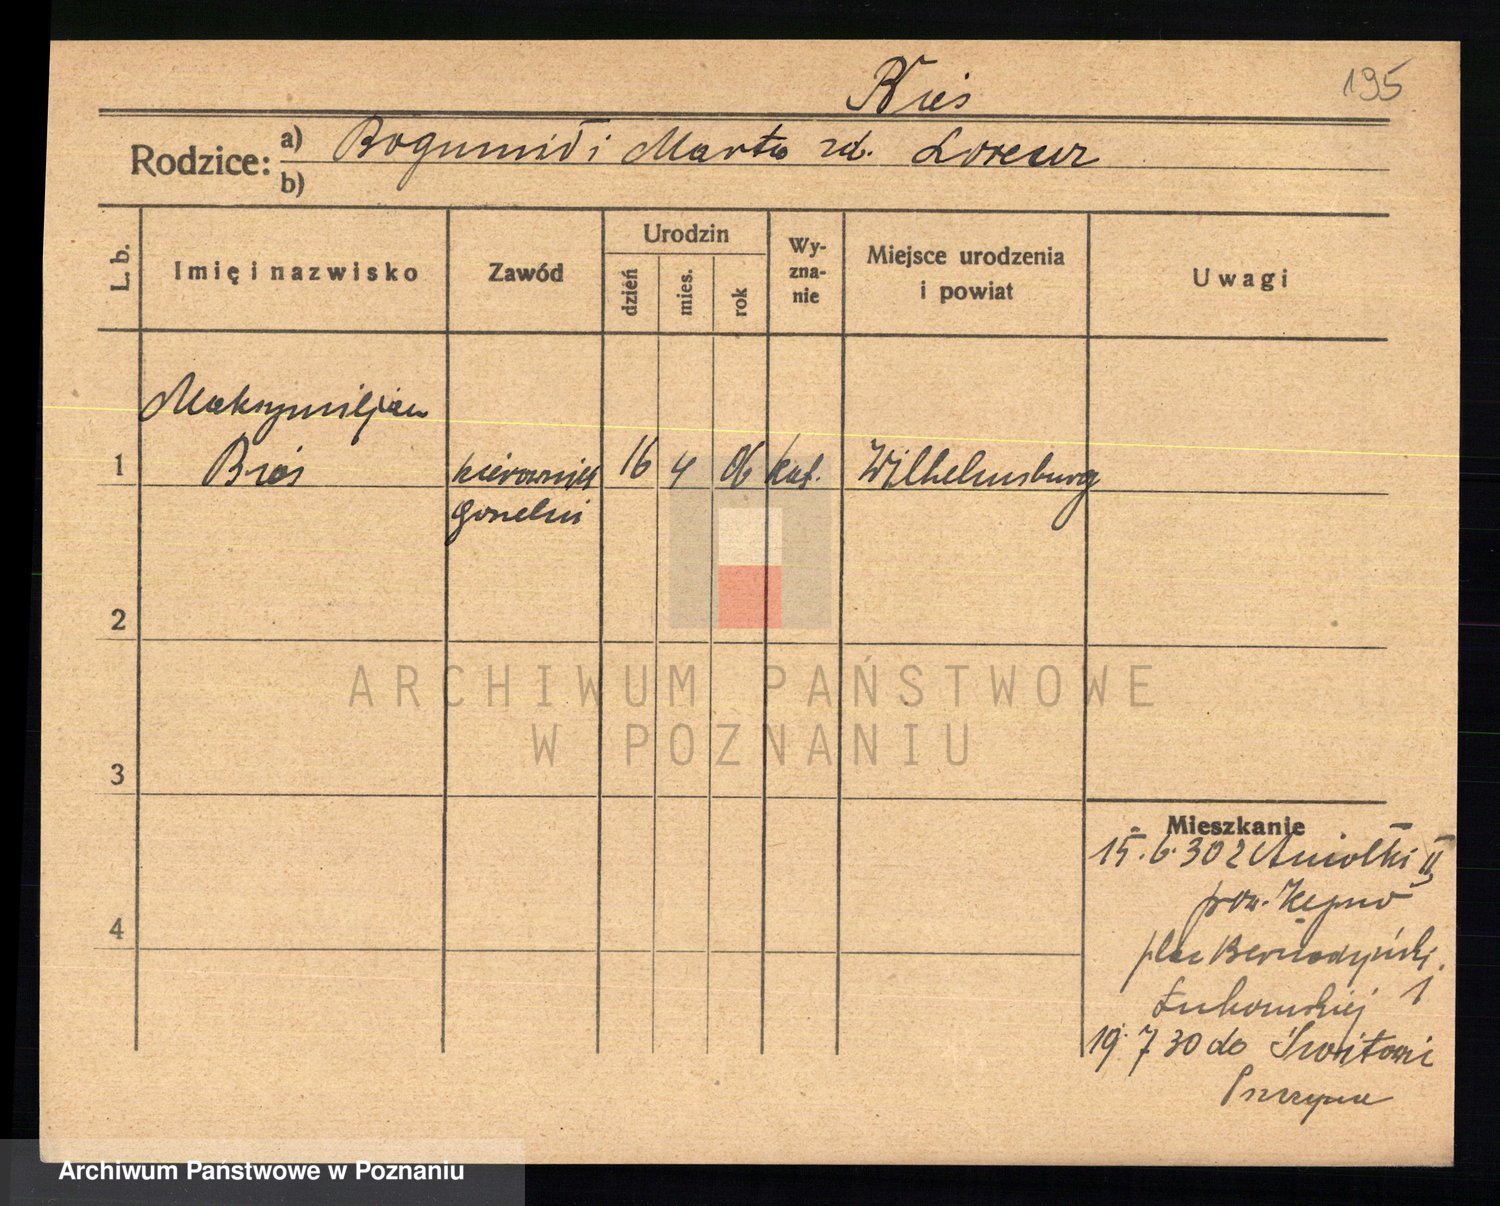 195
Rodzice: a) Bogumił i Marta zd. Lorenz
b)
L. b.
Imię i nazwisko
Zawód
Urodzin
dzień
mies.
rok
Wy-
zna-
nie
Miejsce urodzenia
i powiat
Uwagi
Maksymiljan
1 kierownik 16 4 06 kat. Wilhelmsburg
gorzelni
2
ARCHIWUM PAŃSTWOWE
W POZNANIU
3
Mieszkanie
15. 6. 30 z Aniołki II
pow. Kępno
4
plac Bernadyński
1
19. 7 30 do
Pszczyna
Archiwum Państwowe w Poznaniu